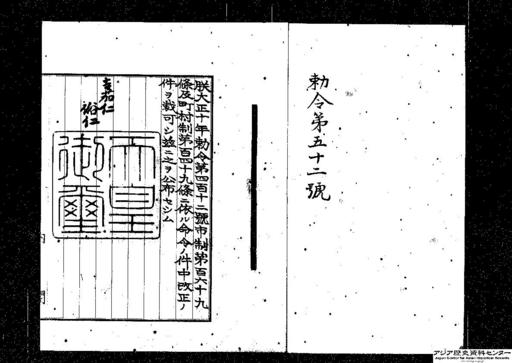 勅令第五十二號
朕大正十年勅令第四百十二號市制第百六十九
條及町村制第百四十九條ニ依ル命令ノ件中改正ノ
件ヲ裁可シ茲ニ之ヲ公布セシム
嘉仁
裕仁
天皇
御璽
内閣
アジア歴史資料センター
Japan Center for Asian Historical Records